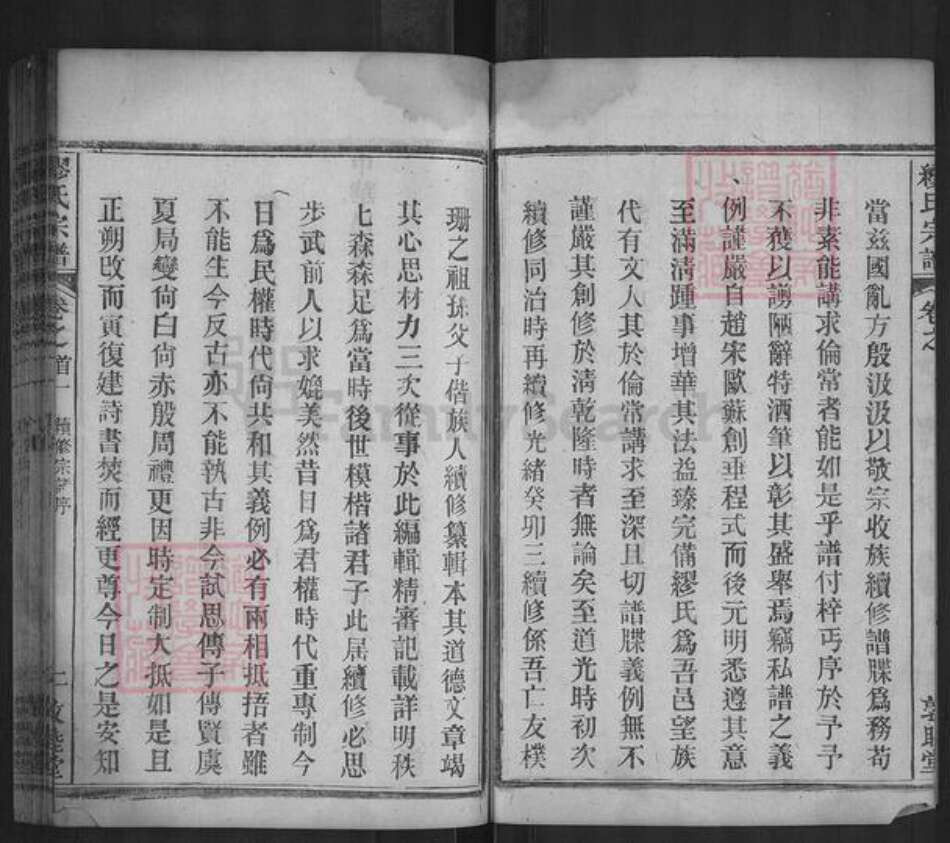 繆氏宗譜
卷之
敦睦堂
當茲國亂方殷汲汲以敬宗收族續修譜牒爲務苟
非素能講求倫常者能如是乎譜付梓丐序於予予
不獲以謭陋辭特洒筆以彰其盛舉焉竊私譜之義
例謹嚴自趙宋歐蘇創垂程式而後元明悉遵其意
至滿淸踵事增華其法益臻完備繆氏爲吾邑望族
代有文人其於倫常講求至深且切譜牒義例無不
謹嚴其創修於淸乾隆時者無論矣至道光時初次
續修同治時再續修光緖癸卯三續修係吾亡友樸
珊之祖孫父子偕族人續修纂輯本其道德文章竭
其心思材力三次從事於此編輯精審記載詳明秩
七森森足爲當時後世模楷諸君子此居續修必思
步武前人以求媲美然昔日爲君權時代重專制今
日爲民權時代尙共和其義例必有兩相抵捂者雖
不能生今反古亦不能執古非今試思傳子傳賢虞
夏局變尙白尙赤殷周禮更因時定制大抵如是且
正朔改而寅復建詩書焚而經更尊今日之是安知
繆氏宗譜
卷之首一
續修宗譜序
二
敦睦堂
FamilySearch